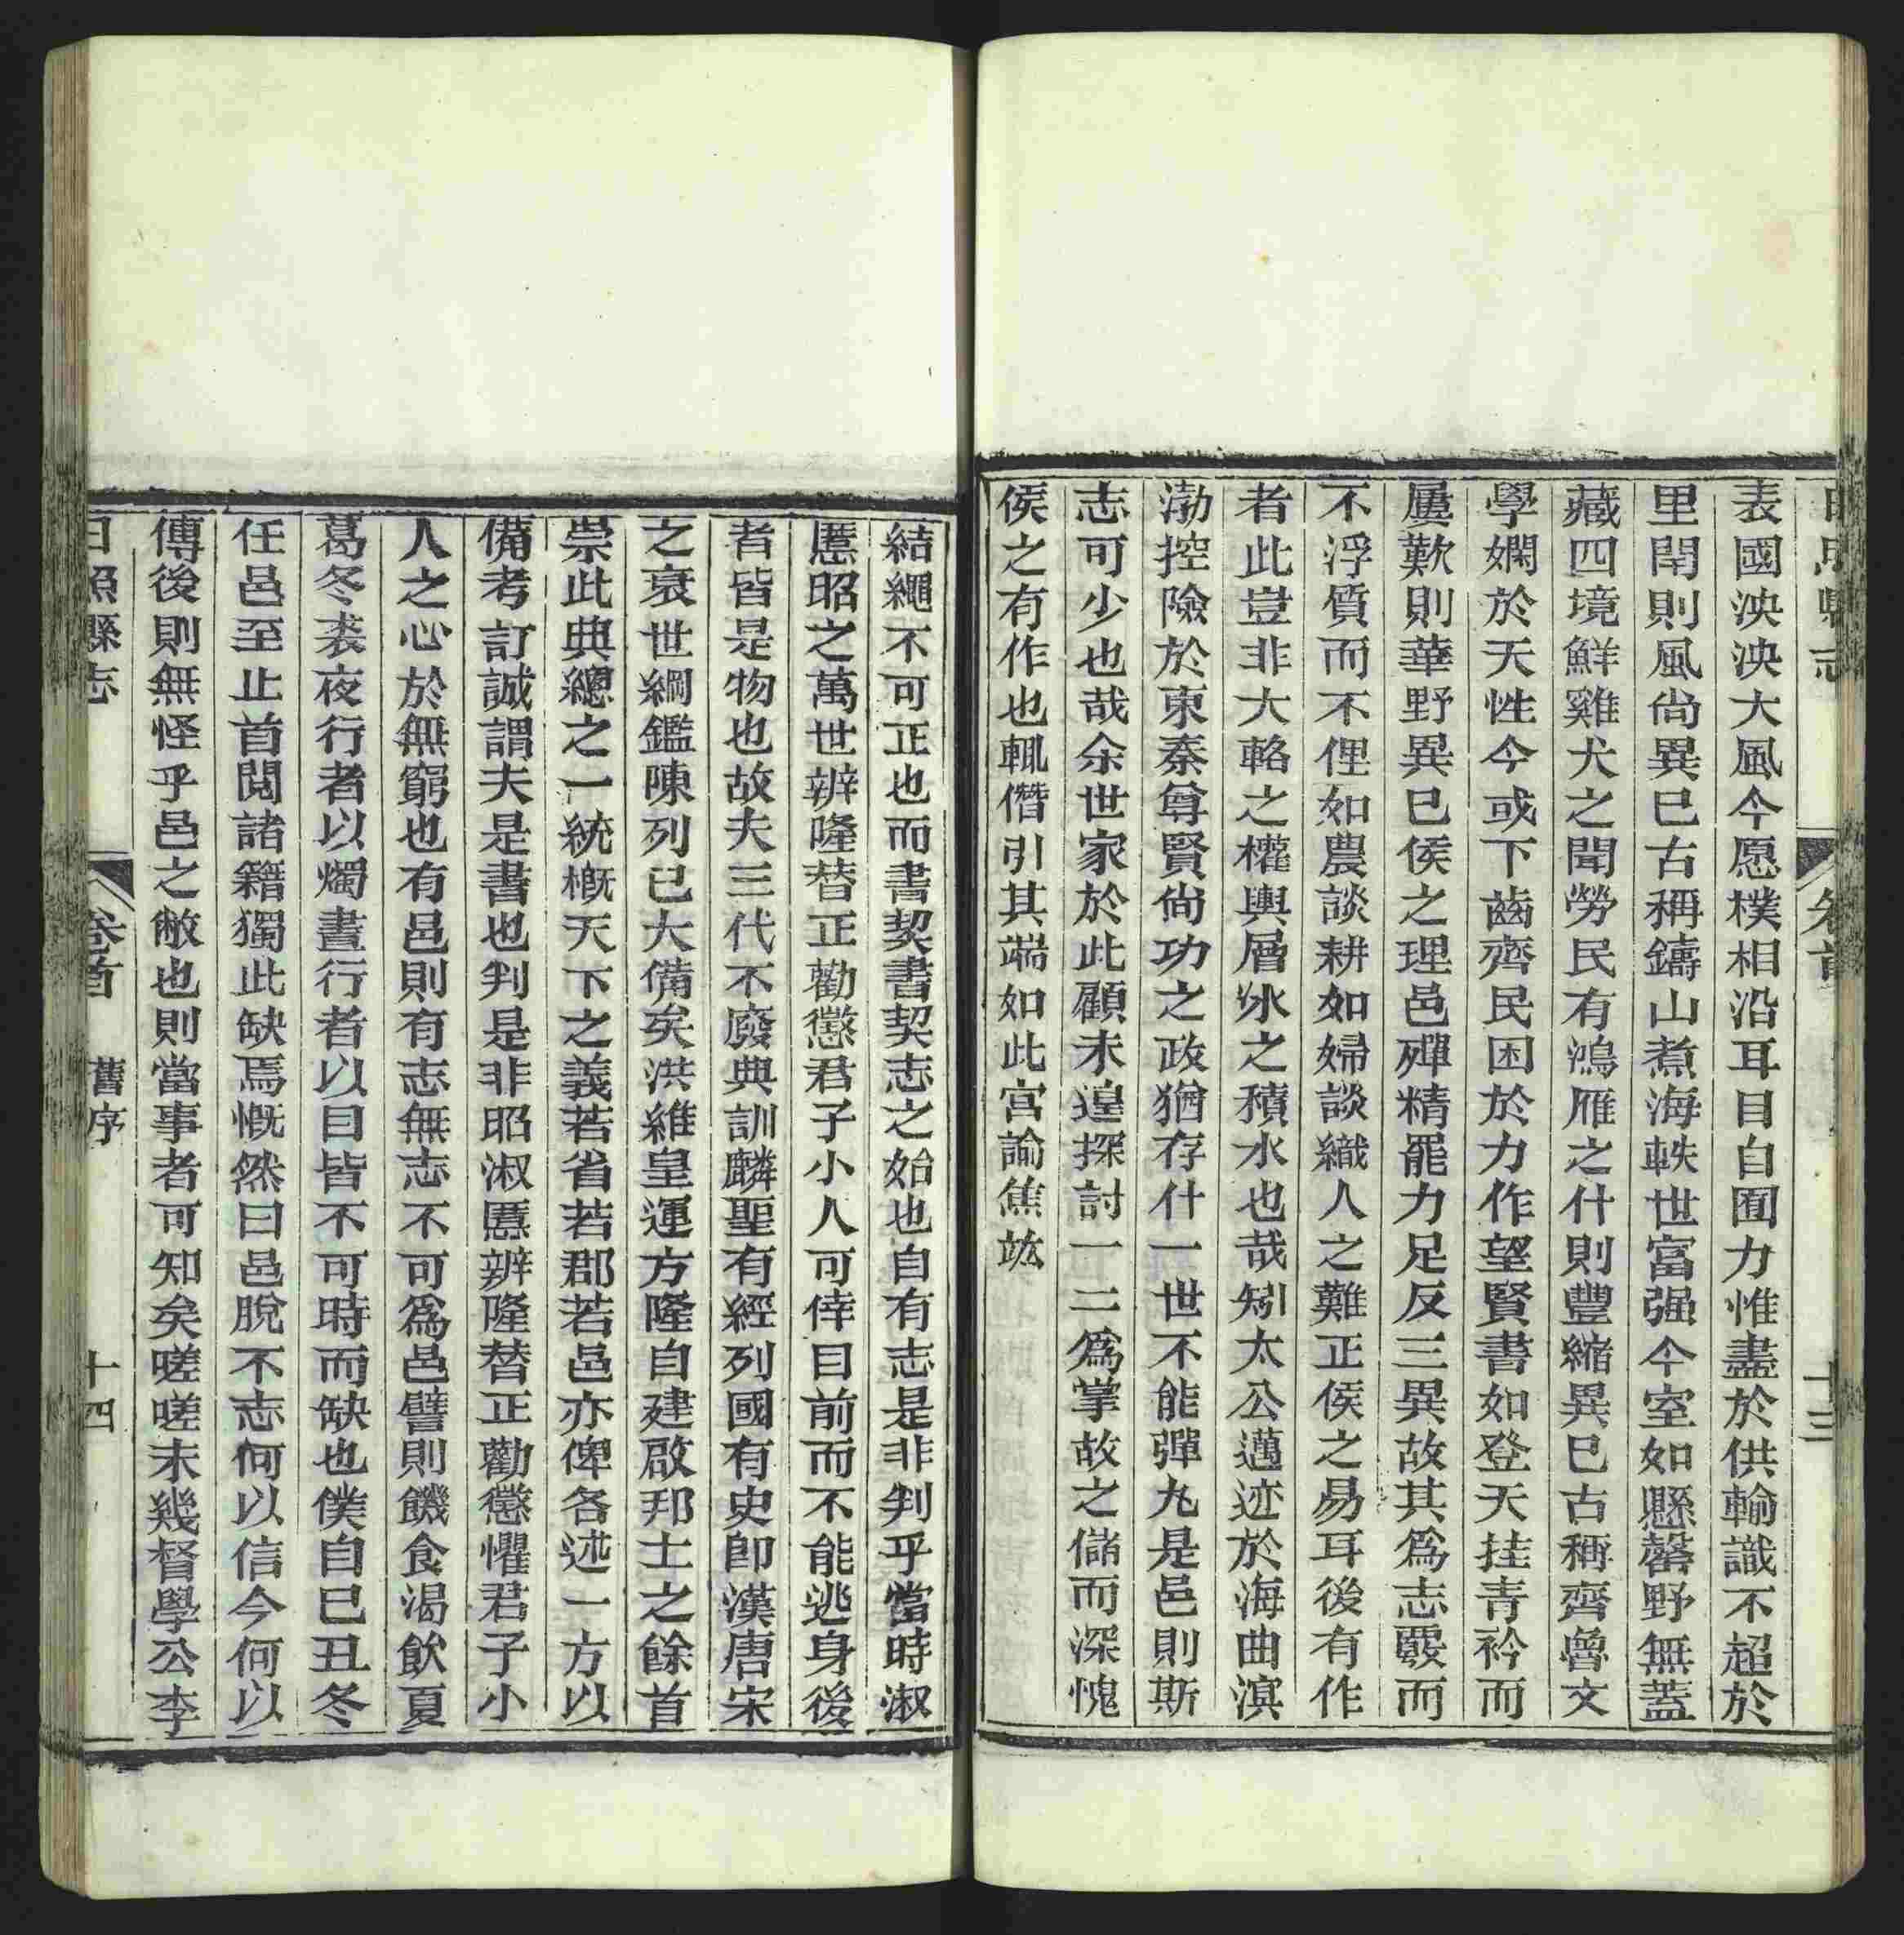 日照縣志 卷首 十三
表國泱泱大風今愿樸相沿耳目自囿力惟盡於供輸識不超於
里閈則風尚異巳古稱鑄山煮海軼世富强今室如懸罄野無蓋
藏四境鮮雞犬之聞勞民有鴻雁之什則豐縮異巳古稱齊魯文
學嫻於天性今或下齒齊民困於力作望賢書如登天挂青衿而
屢歎則華野異巳侯之理邑殫精罷力足反三異故其爲志覈而
不浮質而不俚如農談耕如婦談織人之難正侯之易耳後有作
者此豈非大輅之權輿層氷之積水也哉矧太公邁迹於海曲溟
渤控險於東秦尊賢尚功之政猶存什一世不能彈丸是邑則斯
志可少也哉余世家於此顧未遑探討一二爲掌故之儲而深愧
侯之有作也輒僭引其端如此宮諭焦竑
結繩不可正也而書契書契志之始也自有志是非判乎當時淑
慝昭之萬世辨隆替正勸懲君子小人可倖目前而不能逃身後
者皆是物也故夫三代不廢典訓麟聖有經列國有史卽漢唐宋
之衰世綱鑑陳列已大備矣洪維皇運方隆自建啟邦土之餘首
崇此典總之一統概天下之義若省若郡若邑亦俾各述一方以
備考訂誠謂夫是書也判是非昭淑慝辨隆替正勸懲懼君子小
人之心於無窮也有邑則有志無志不可爲邑譬則饑食渴飲夏
葛冬裘夜行者以燭晝行者以目皆不可時而缺也僕自巳丑冬
任邑至止首閱諸籍獨此缺焉慨然曰邑脫不志何以信今何以
傳後則無怪乎邑之敝也則當事者可知矣嗟嗟未幾督學公李
日照縣志 卷首 舊序 十四